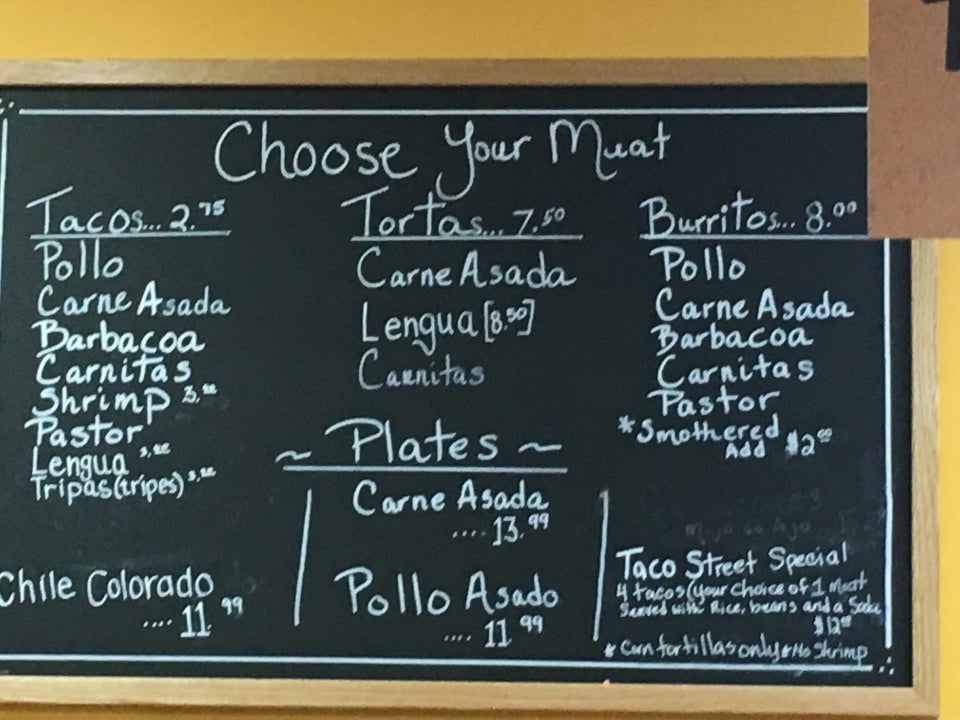 Choose Your Meat
Tacos... 2.75
Pollo
Carne Asada
Barbacoa
Carnitas
Shrimp
Pastor
Lengua
Tripas (tripes)
Tortas... 7.50
Carne Asada
Lengua [8.50]
Carnitas
Burritos... 8.00
Pollo
Carne Asada
Barbacoa
Carnitas
Pastor
*Smothered
Add $2.00
~ Plates ~
Chile Colorado
.... 11.99
Carne Asada
.... 13.99
Pollo Asado
.... 11.99
Taco Street Special
4 tacos (your choice of 1 meat
Served with Rice, beans and a Soda
* Corn tortillas only * No Shrimp